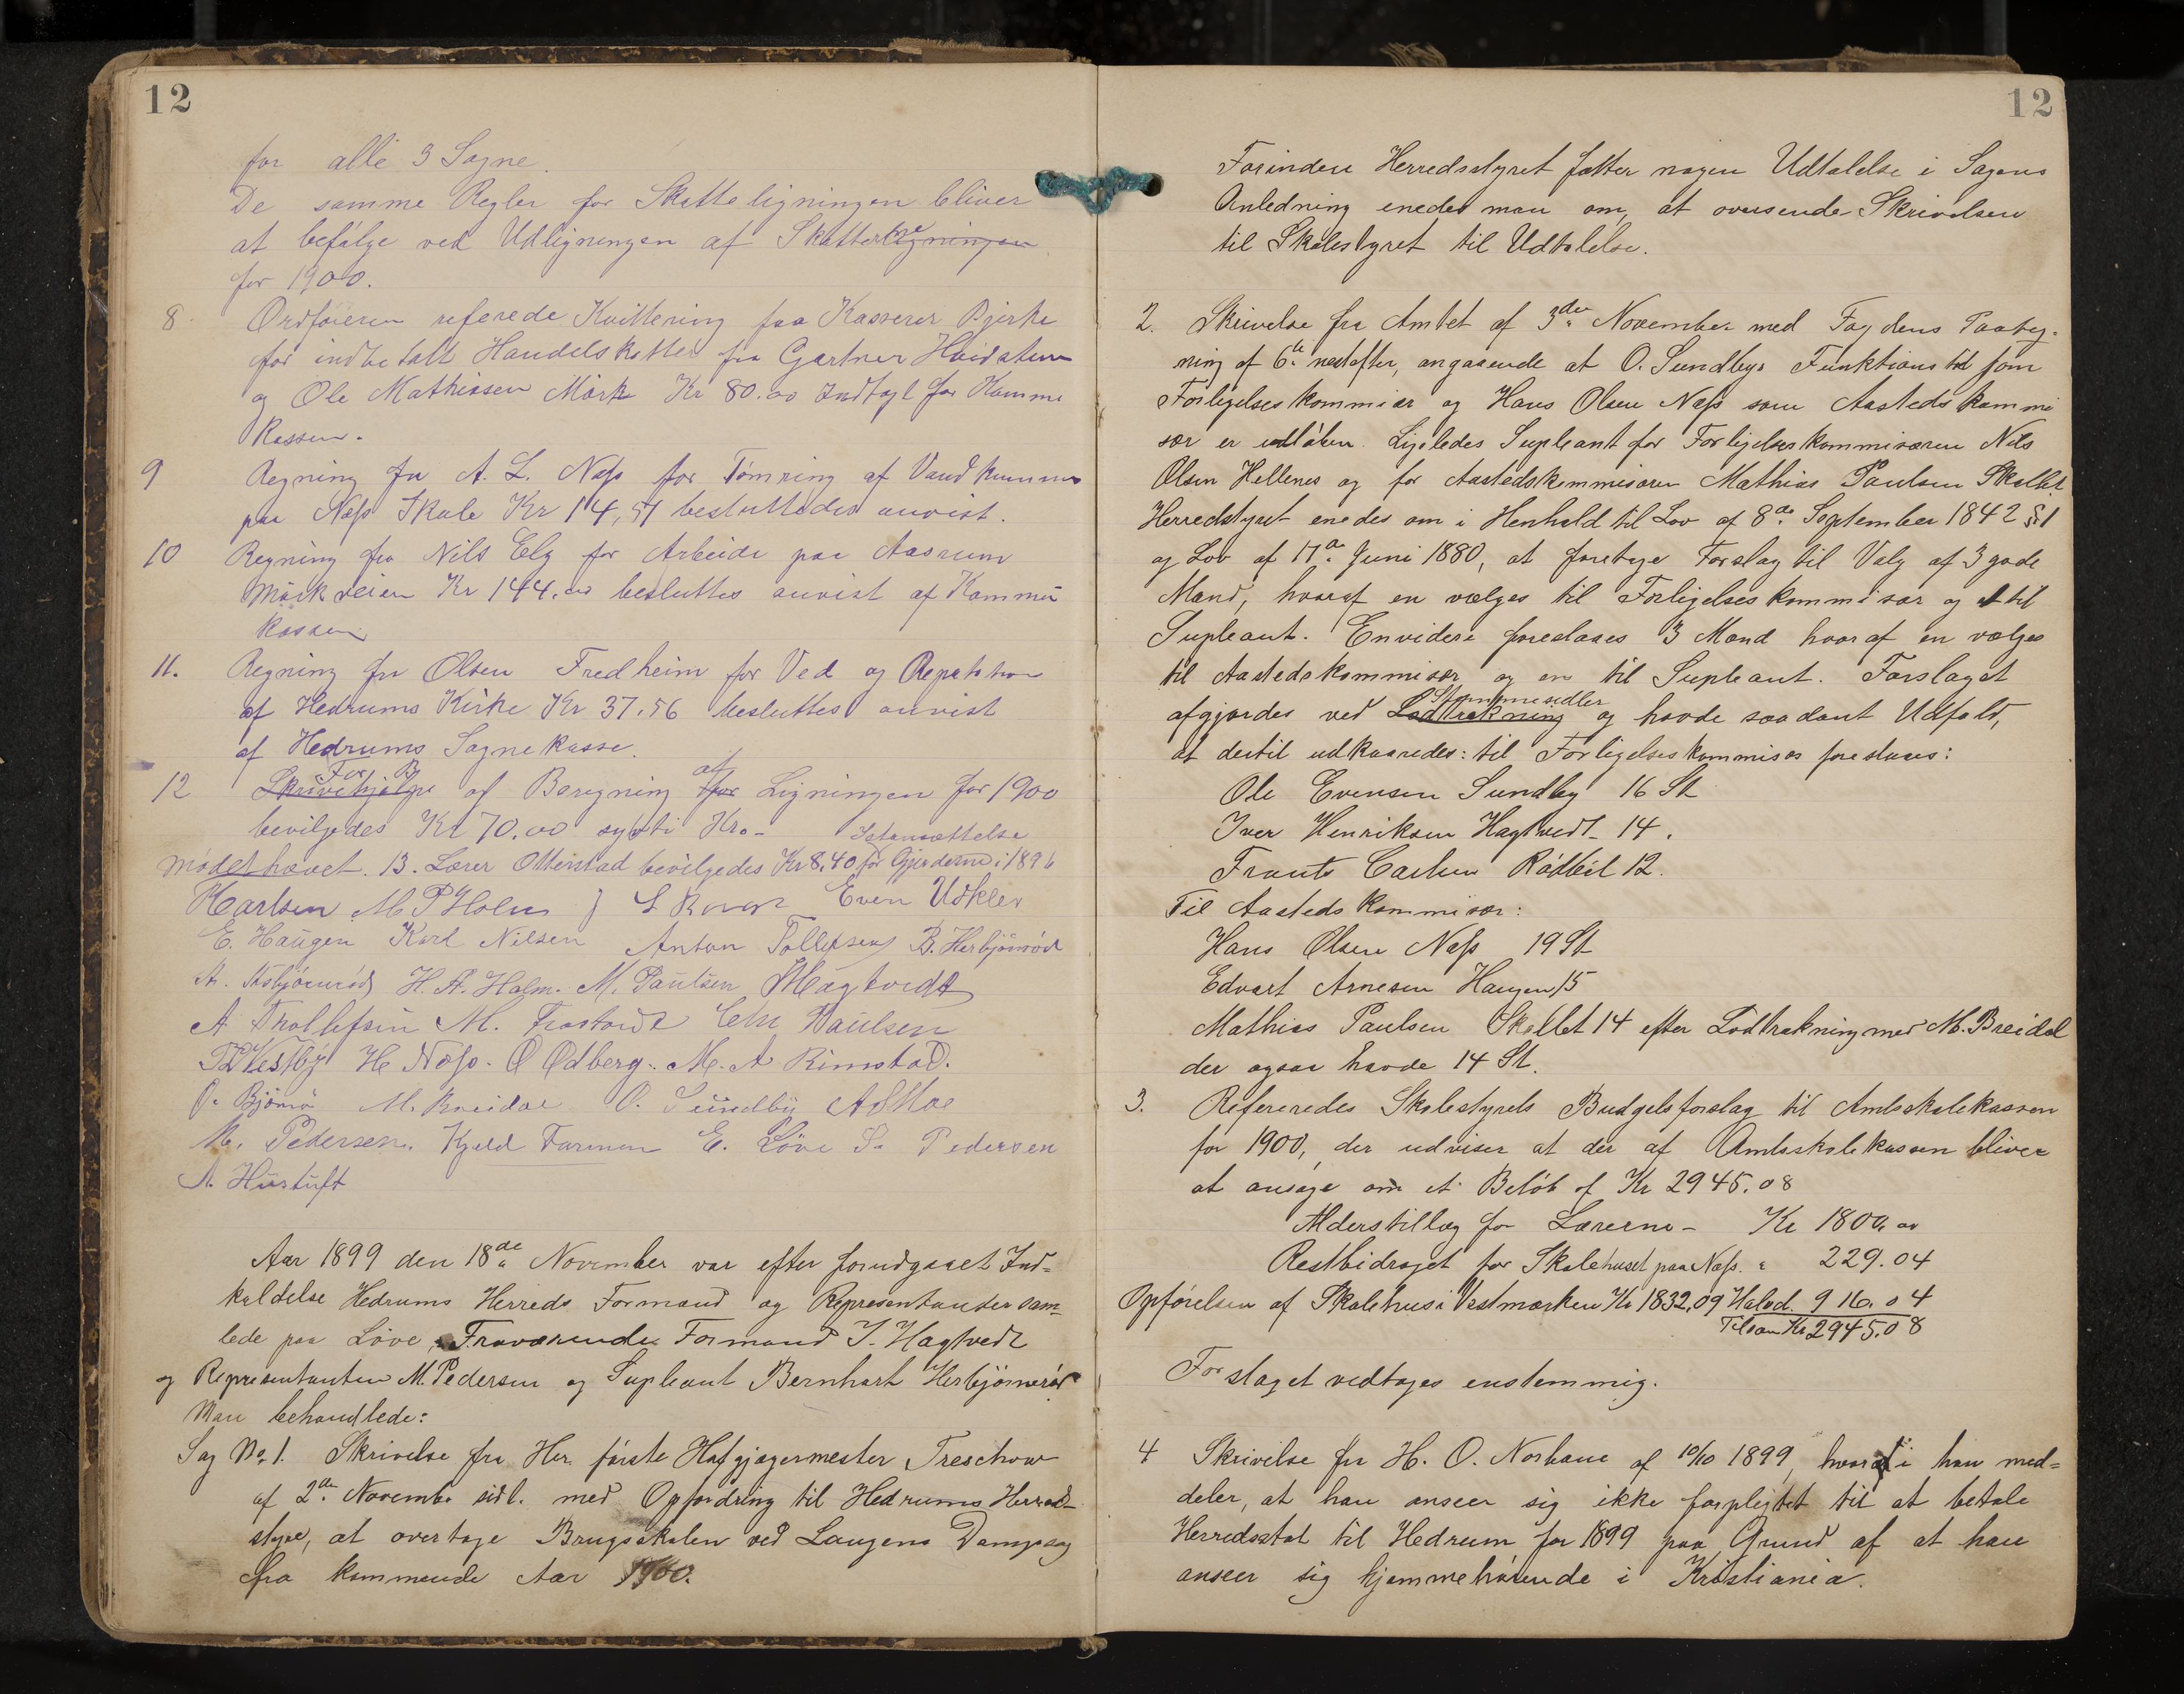 12
for alle 3 Sogne.
De samme Regler for Skatteligningen bliver
at befølge ved Udligningen af Skatterne
for 1900.
8 Ordføreren referede Kvittering fra Kasserer Bjerke
for indbetalt Handelskatter fra Gartner Hvidsteen
og Ole Mathissen Mørk Kr 80.00 Indtægt for Kommu
Kassen.
9 Regning fra A. L. Næss for Tømring af Vandkummen
paa Næss Skole Kr 14,51 besluttedes anvist.
10 Regning fra Nils Elg for Arbeide paa Aasrum
Mørkveien Kr 144.00 besluttes anvist af Kommu
kassen
11. Regning fra Olsen Fredheim for Ved og Reparation
af Hedrums Kirke Kr 37.56 besluttes anvist
af Hedrums Sognekasse.
12 For Skrivehjælpe og Beregning af Ligningen for 1900
bevilgedes Kr 70.00 sytti Kr.-
Istansættelse
Mødet hævet. 13. Lærer Otterstad bevilgedes Kr 8.40 for Gjerderne i 1896
Karlsen M P Holm Even Udklev
E. Haugen Karl Nilsen Anton Tollefsen B. Herbjørnrød
A. Asbjørnrød H. A. Holm. M. Paulsen I Hagtvedt
A Thollefsen M. Trostvedt Chr Paulsen
Vestby H Næss. O Odberg. M. A Rimstad.
O. Bjørnø M. Breidal O. Sundby A S Moe
M. Pedersen. Kjeld Farmen E. Løve S. Pedersen
A. Hustuft
Aar 1899 den 18de November var efter forudgaaet Ind-
kaldelse Hedrums Herreds Formænd og Representanter sam-
lede paa Løve, Fraværende Formand I. Hagtvedt
og Representanten M. Pedersen og Supleant Bernhart Herbjørnrød
Man behandlede:
Sag No 1. Skrivelse fra Her. første Hofgjægermester Treschow
af 2den November sidl. med Opfordring til Hedrums Herred-
styre, at overtage Brugsskolen ved Laugens Dampsag
fra kommende Aar 1900.
12
Forinden Herredsstyret fatter nogen Udtalelse i Sagens
Anledning enedes man om, at oversende Skrivelsen
til Skolestyret til Udtalelse.
2. Skrivelse fra Amtet af 3die November med Fogdens Paateg-
ning af 6te nestefter, angaaende at O. Sundbys Funktionstid som
Forligelseskommisær og Hans Olsen Næss som Aastedskommi
sær er udløben. Ligeledes Supleant for Forligelseskommisæren Nils
Olsen Hellenes og for Aastedskommisæren Mathias Paulsen Skallet
Herredstyret enedes om i Henhold til Lov af 8de September 1842 § 1
og Lov af 17de Juni 1880, at foretage Forslag til Valg af 3 gode
Mænd, hvoraf en vælges til Forligelseskommisær og 1 til
Supleant. Envidere foreslaaes 3 Mænd hvoraf en vælges
til Aastedskommisær og en til Supleant. Forslaget
Stemmesedler
afgjordes ved Lodtrækning og havde saadant Udfald,
at dertil udkaaredes: til Forligelseskommisær foreslaaes:
Ole Evensen Sundby 16 St
Iver Henriksen Hagtvedt 14.
Frants Carlsen Rødbøl 12.
Til Aastedskommisær:
Hans Olsen Næss 19 St
Edvart Arnesen Haugen 15
Mathias Paulsen Skallet 14 efter Lodtrækning med M. Breidal
der ogsaa havde 14 St.
3. Refereredes Skolestyrets Budgetsforslag til Amtsskolekassen
for 1900, der udviser at der af Amtsskolekassen bliver
at ansøge om et Beløb af Kr 2945.08
Alderstillæg for Lærerne - Kr 1800.00
Restbidraget for Skolehuset paa Næss. " 229.04
Opførelsen af Skolehus i Vestmarken Kr 1832.09 Halvd. 916.04
Tilsam Kr 2945.08
Forslaget vedtages enstemmig.
4 Skrivelse fra H. O. Norbane af 10/10 1899, hvori han med-
deler, at han anseer sig ikke forpligtet til at betale
Herredsskat til Hedrum for 1899 paa Grund af at han
anseer sig hjemmehørende i Kristiania.